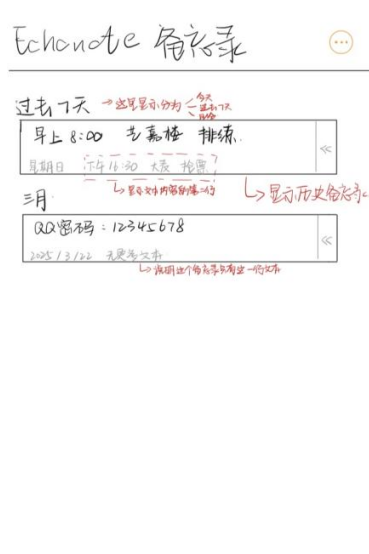 Echonote 备忘录
过去7天 →这里显示分为 今天
过去7天
早上 8:00 艺嘉楼 排练.
星期日 下午16:30 大麦 抢票
↳显示文本内容的第二行
↳显示历史备忘录
三月
QQ密码：12345678
2025/3/22 无更多文本
↳说明这个备忘录只有这一行文本